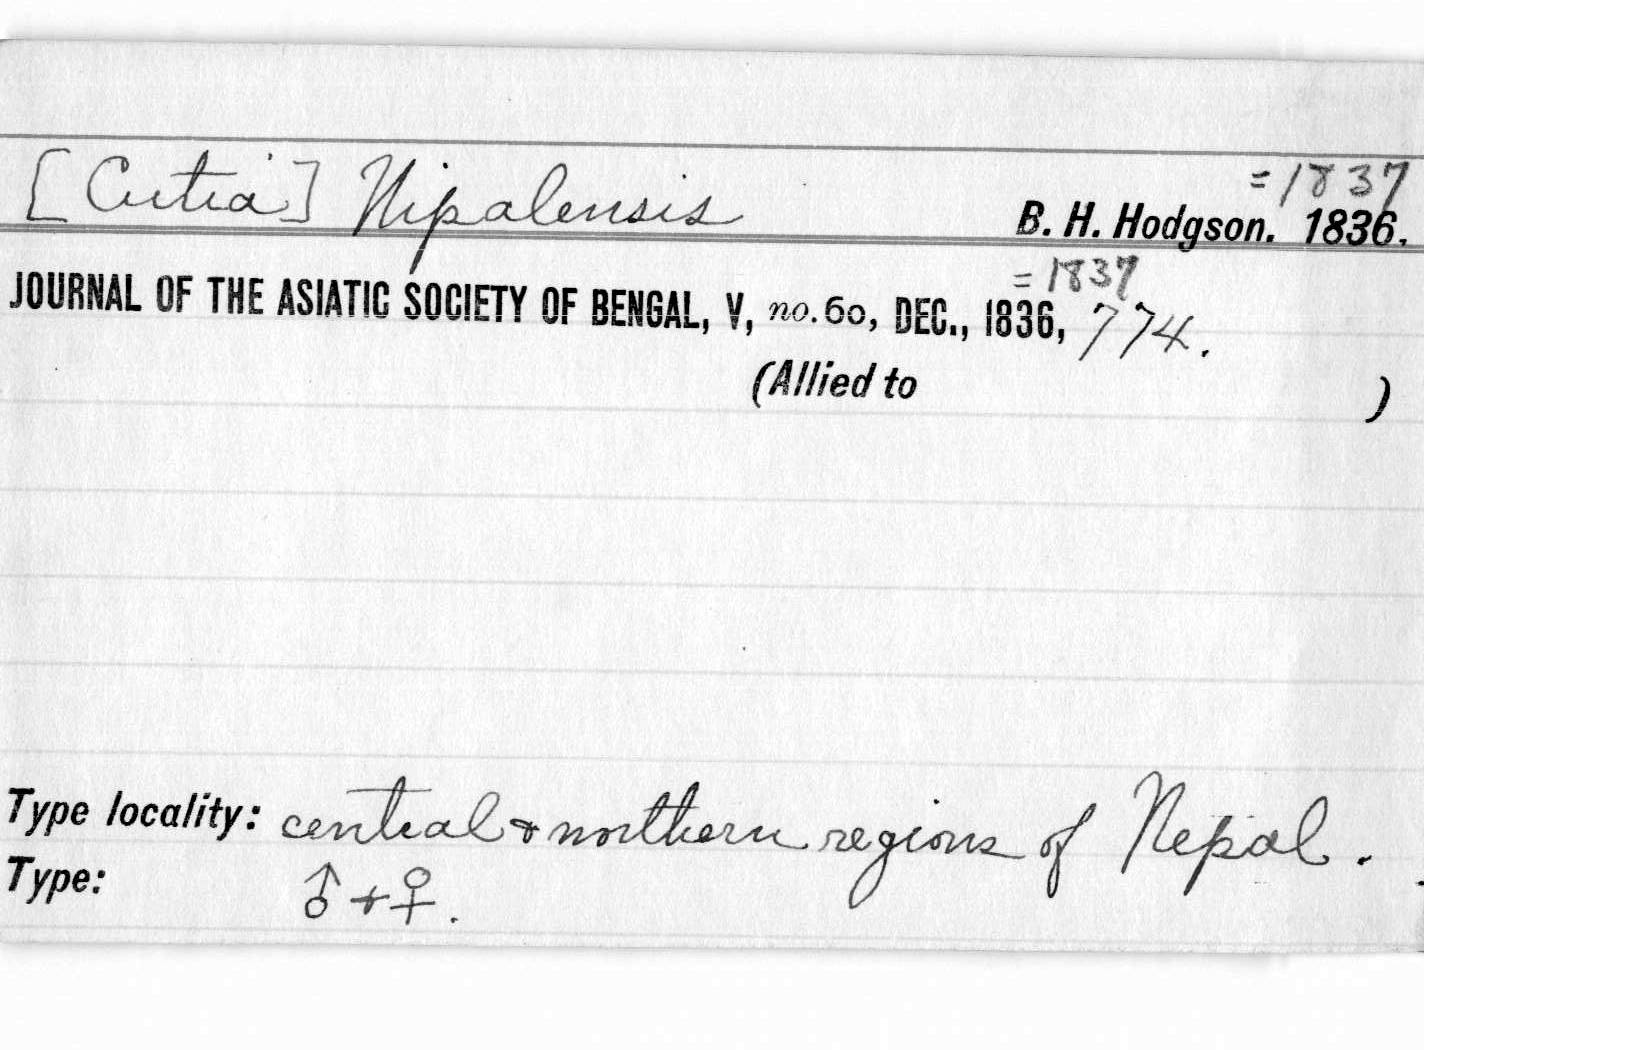 = 1837
[Cutia] Nipalensis B. H. Hodgson. 1836.
= 1837
JOURNAL OF THE ASIATIC SOCIETY OF BENGAL, V, no. 60, DEC., 1836, 774.
(Allied to )
Type locality: central & northern regions of Nepal.
Type: ♂ + ♀.